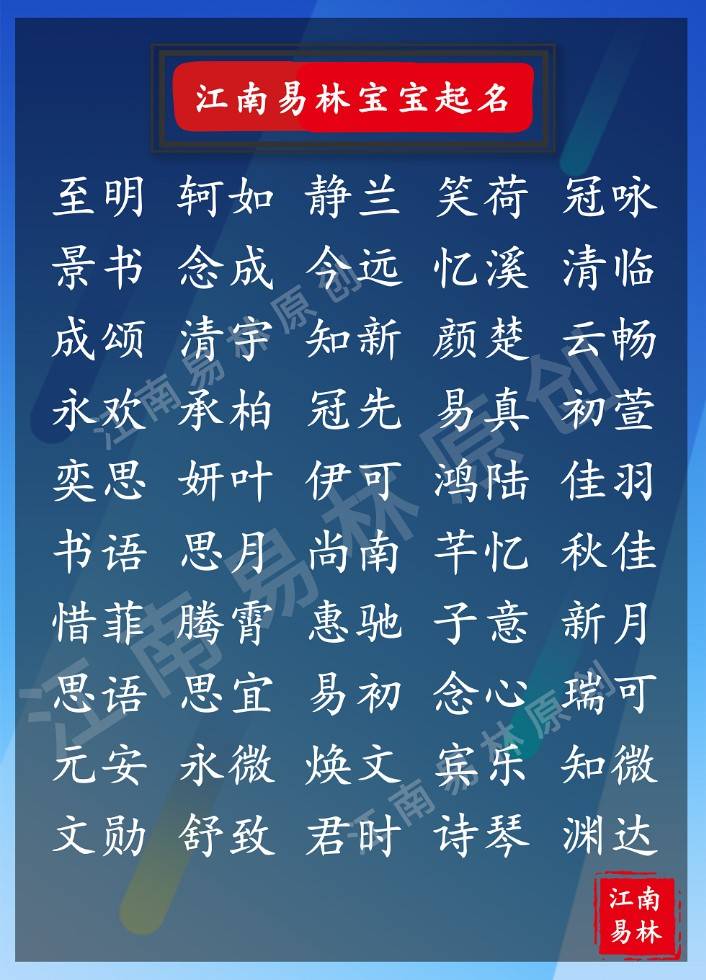 江南易林宝宝起名
至明 轲如 静兰 笑荷 冠咏
景书 念成 今远 忆溪 清临
成颂 清宇 知新 颜楚 云畅
永欢 承柏 冠先 易真 初萱
奕思 妍叶 伊可 鸿陆 佳羽
书语 思月 尚南 芊忆 秋佳
惜菲 腾霄 惠驰 子意 新月
思语 思宜 易初 念心 瑞可
元安 永微 焕文 宾乐 知微
文勋 舒致 君时 诗琴 渊达
江南易林原创
江南易林原创
江南易林原创
江南
易林